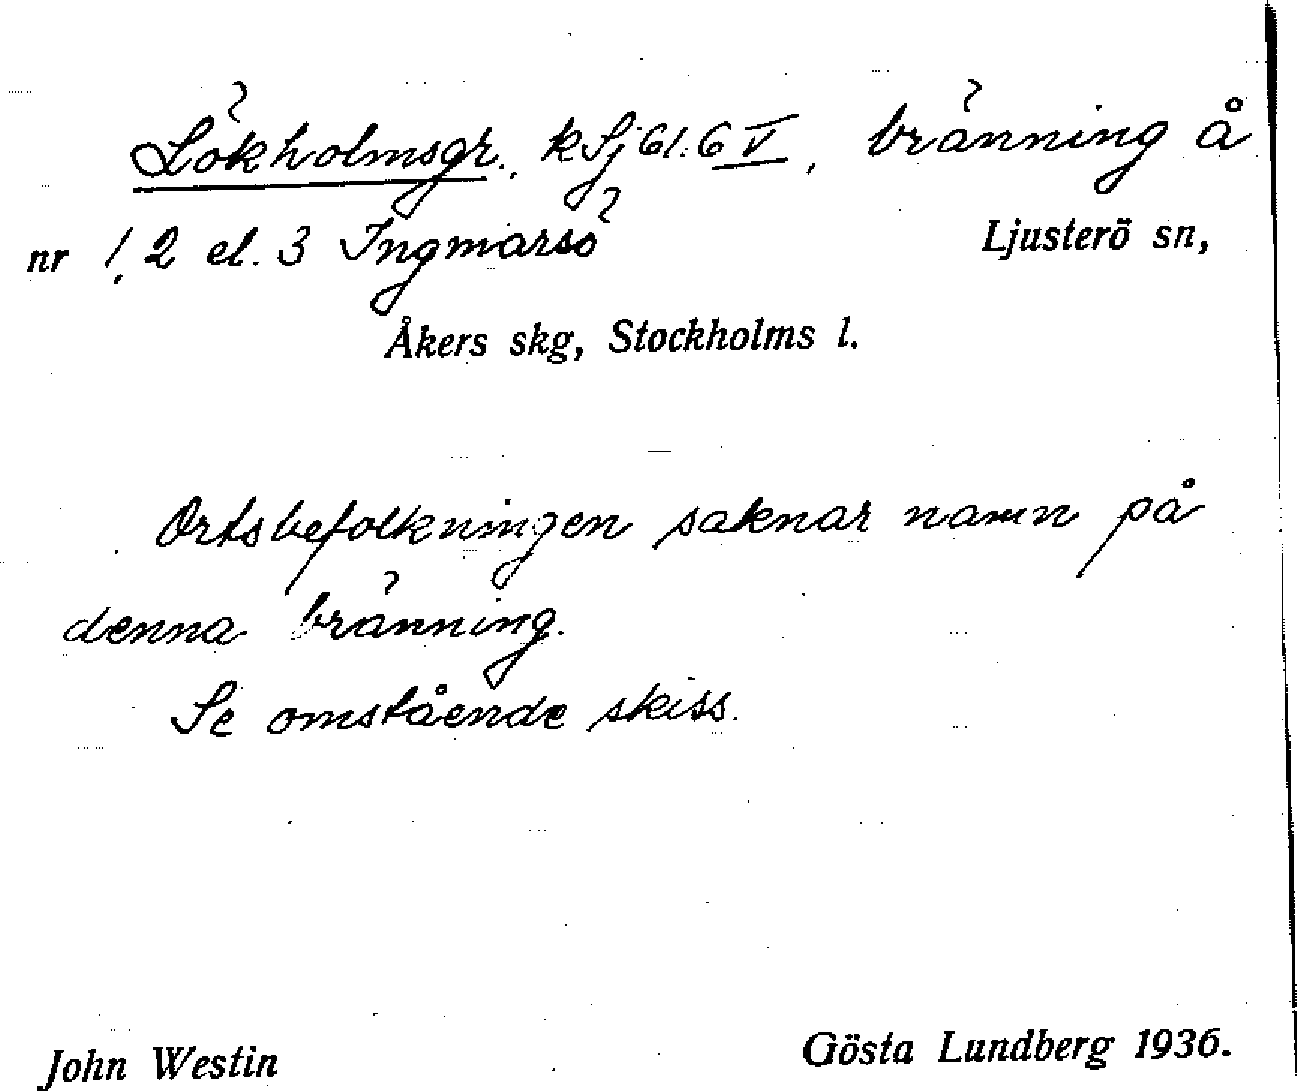 Lökholmsgr., kSj 61.6 V, bränning å
nr 1, 2 el. 3 Ingmarsö Ljusterö sn,
Åkers skg, Stockholms l.
Ortsbefolkningen saknar namn på
denna bränning.
Se omstående skiss.
John Westin Gösta Lundberg 1936.